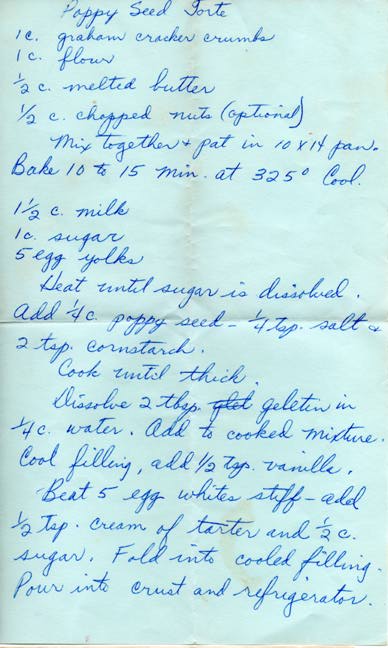 Poppy Seed Torte
1c. graham cracker crumbs
1c. flour
½ c. melted butter
½ c. chopped nuts (optional)
Mix together + pat in 10 x 14 pan.
Bake 10 to 15 min. at 325° Cool.
1½ c. milk
1c. sugar
5 egg yolks
Heat until sugar is dissolved.
Add ¼ c. poppy seed - ¼ tsp. salt +
2 tsp. cornstarch.
Cook until thick.
Dissolve 2 tbsp. geletin in
¼ c. water. Add to cooked mixture.
Cool filling, add ½ tsp. vanilla.
Beat 5 egg whites stiff - add
½ tsp. cream of tarter and ½ c.
sugar. Fold into cooled filling.
Pour into crust and refrigerator.